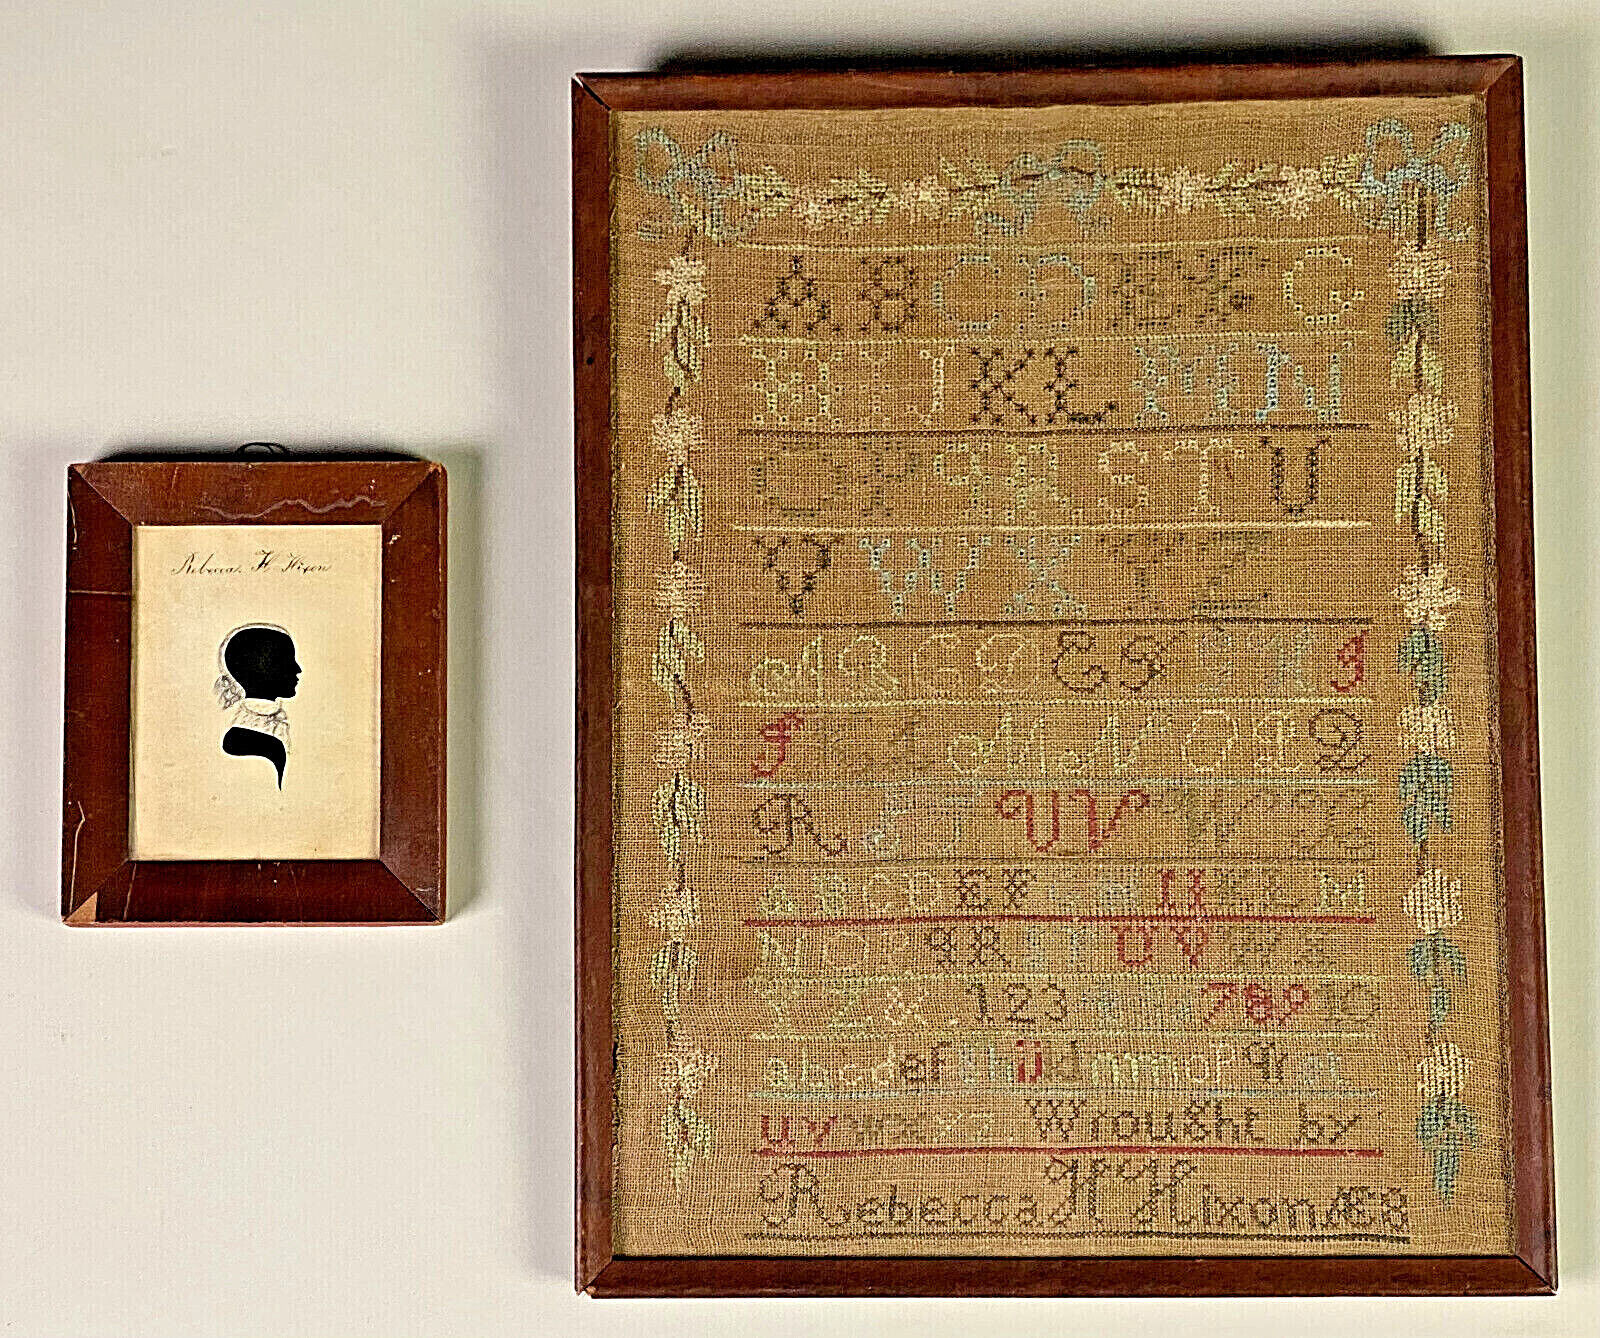 Rebecca. H. Hixon
A B C D E F G
H I J K L M N
O P Q R S T U
V W X Y Z
A B C D E F G H I
J K L M N O P Q
R S T U V W X Z
A B C D E F G H I J K L M
N O P Q R S T U V W X
Y Z & . 1 2 3 4 5 6 7 8 9 10
a b c d e f g h i j k l m n o p q r s t
u v w x y z Wrought by
Rebecca H Hixon Æ 8